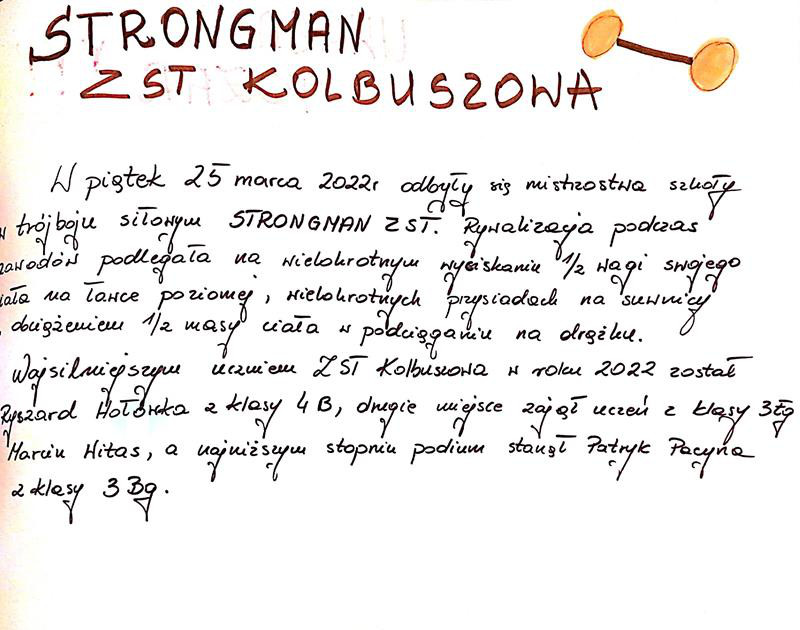 STRONGMAN
ZST KOLBUSZOWA
W piątek 25 marca 2022r odbyły się mistrzostwa szkoły
w trójboju siłowym STRONGMAN ZST. Rywalizacja podczas
zawodów podlegała na wielokrotnym wyciskaniu 1/2 wagi swojego
ciała na ławce poziomej, wielokrotnych przysiadach na suwnicy
obciążeniem 1/2 masy ciała w podciąganiu na drążku.
Najsilniejszym uczniem ZST Kolbuszowa w roku 2022 został
Ryszard Hołówka z klasy 4B, drugie miejsce zajął uczeń z klasy 3Tg
Marcin Witas, a najniższym stopniu podium stanął Patryk Pacyna
z klasy 3 Bg.